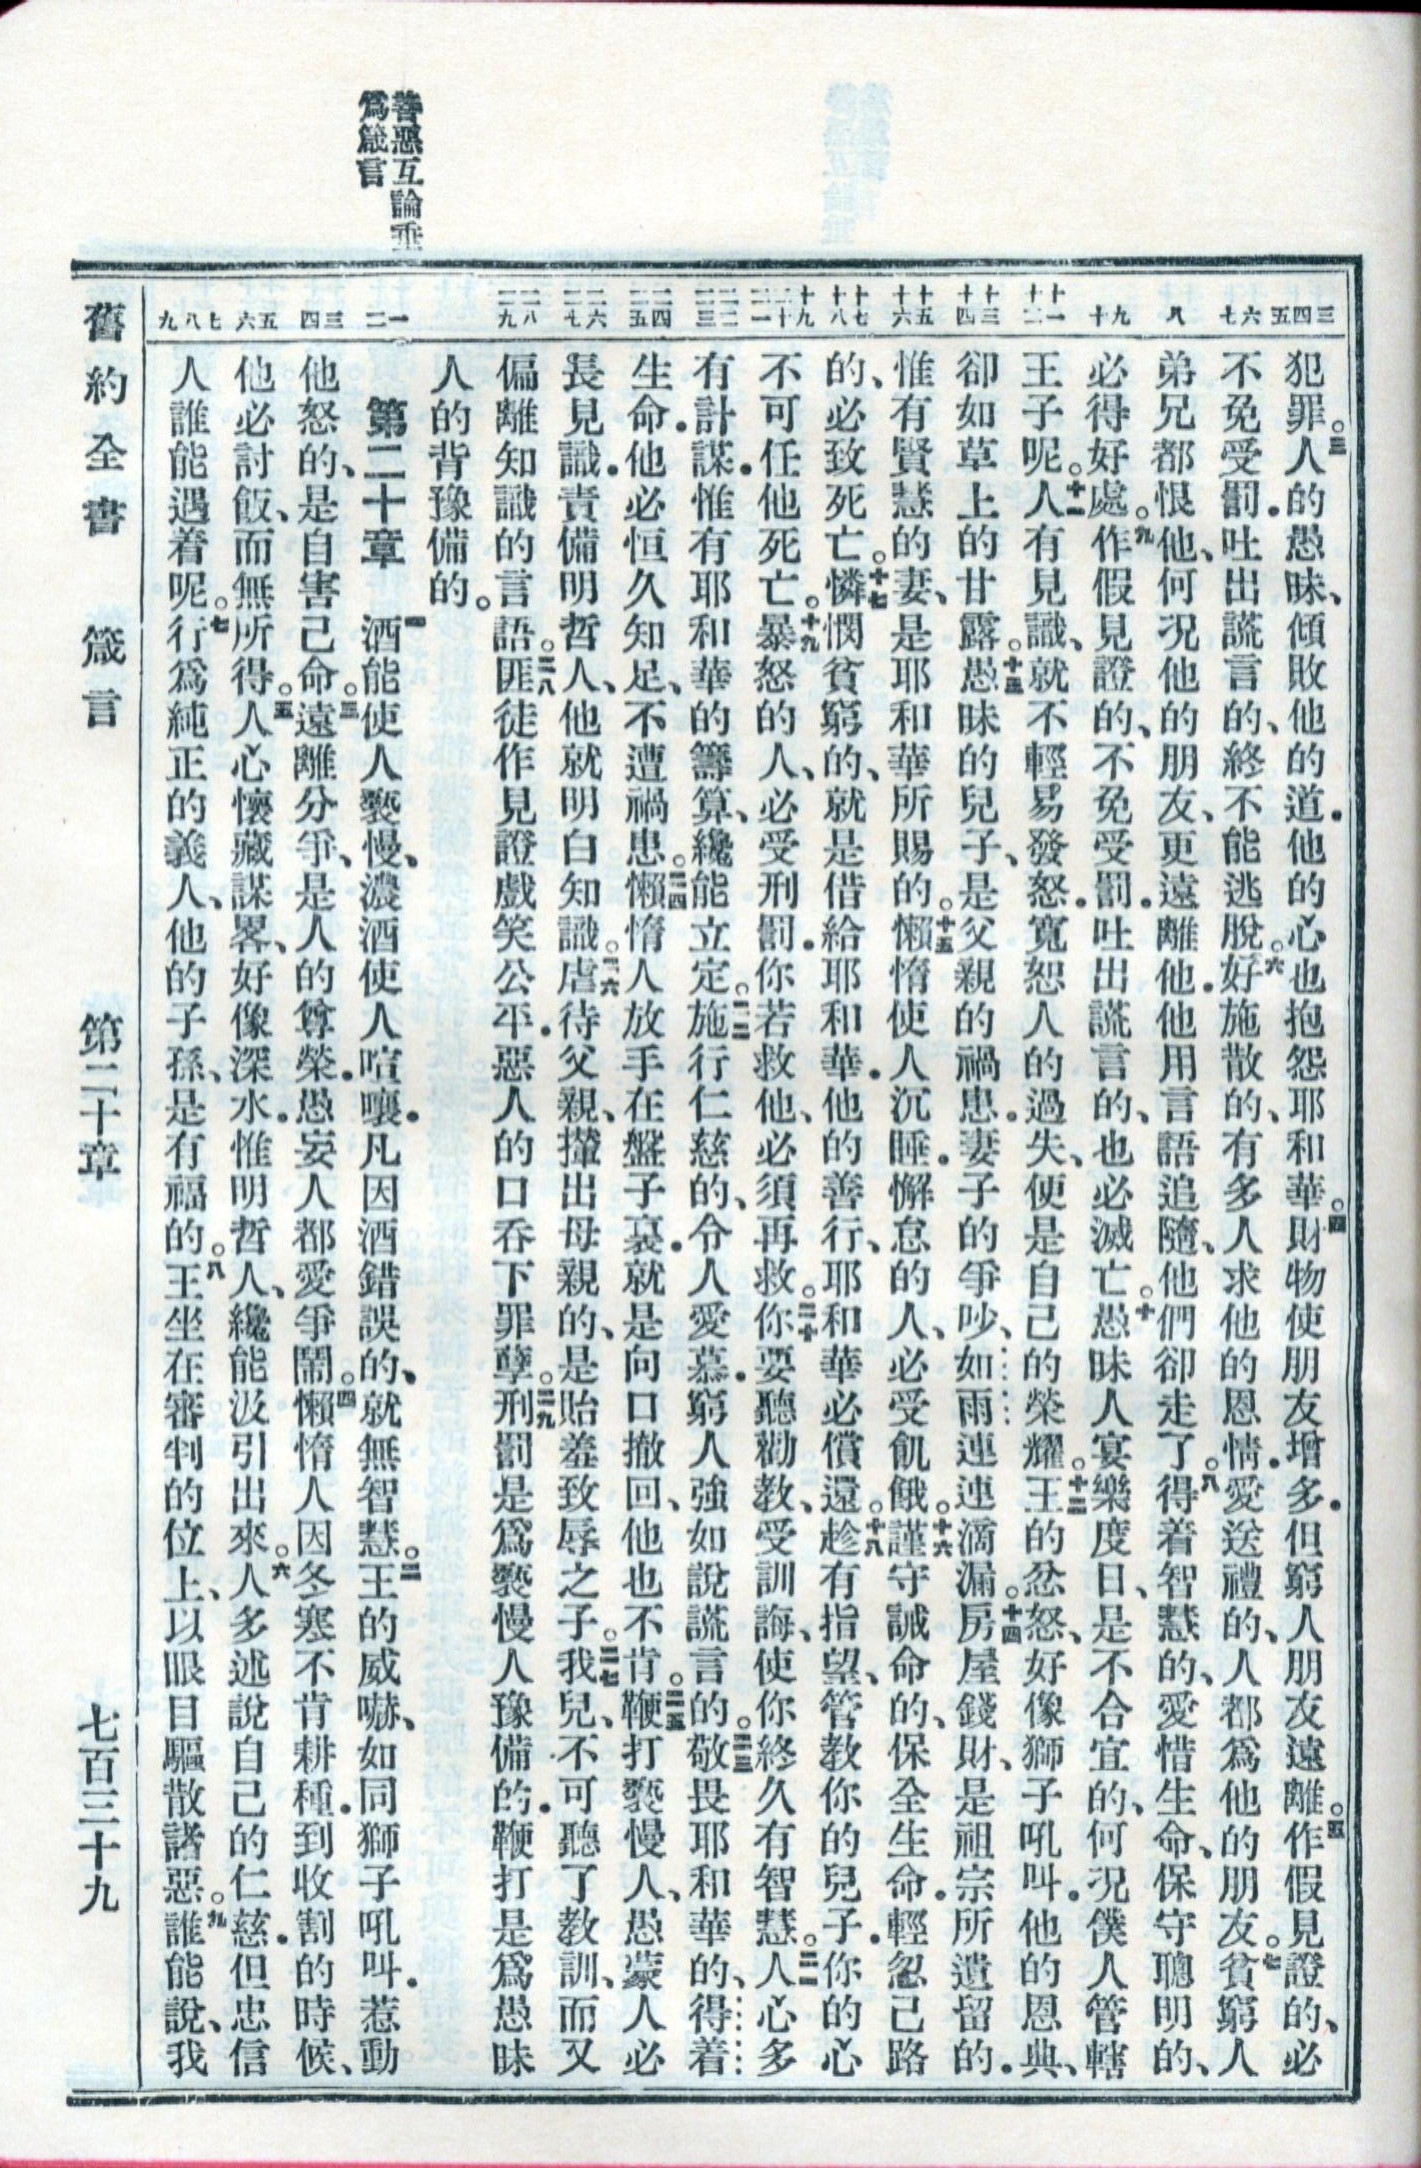 善惡互論垂
爲箴言
三四五
六七
八
九十
十一十二
十三十四
十五十六
十七十八
十九二十二一
二二二三
二四二五
二六二七
二八二九
一二
三四
五六
七八九
犯罪。三人的愚昧、傾敗他的道．他的心也抱怨耶和華。四財物使朋友增多．但窮人朋友遠離。五作假見證的、必
不免受罰．吐出謊言的、終不能逃脫。六好施散的、有多人求他的恩情．愛送禮的、人都爲他的朋友。七貧窮人
弟兄都恨他、何況他的朋友、更遠離他．他用言語追隨、他們卻走了。八得着智慧的、愛惜生命、保守聰明的、
必得好處。九作假見證的、不免受罰．吐出謊言的、也必滅亡。十愚昧人宴樂度日、是不合宜的、何況僕人管轄
王子呢。十一人有見識、就不輕易發怒．寬恕人的過失、便是自己的榮耀。十二王的忿怒、好像獅子吼叫．他的恩典、
卻如草上的甘露。十三愚昧的兒子、是父親的禍患．妻子的爭吵、如雨連連滴漏。十四房屋錢財、是祖宗所遺留的．
惟有賢慧的妻、是耶和華所賜的。十五懶惰使人沉睡．懈怠的人、必受飢餓。十六謹守誡命的、保全生命．輕忽己路
的、必致死亡。十七憐憫貧窮的、就是借給耶和華．他的善行、耶和華必償還。十八趁有指望、管教你的兒子．你的心
不可任他死亡。十九暴怒的人、必受刑罰．你若救他、必須再救。二十你要聽勸教、受訓誨、使你終久有智慧。二一人心多
有計謀．惟有耶和華的籌算、纔能立定。二二施行仁慈的、令人愛慕．窮人強如說謊言的。二三敬畏耶和華的、得着
生命．他必恒久知足、不遭禍患。二四懶惰人放手在盤子裏．就是向口撤回、他也不肯。二五鞭打褻慢人、愚蒙人必
長見識．責備明哲人、他就明白知識。二六虐待父親、攆出母親的、是貽羞致辱之子。二七我兒、不可聽了教訓、而又
偏離知識的言語。二八匪徒作見證戲笑公平．惡人的口吞下罪孽。二九刑罰是爲褻慢人豫備的．鞭打是爲愚昧
人的背豫備的。
第二十章　一酒能使人褻慢、濃酒使人喧嚷．凡因酒錯誤的、就無智慧。二王的威嚇、如同獅子吼叫．惹動
他怒的、是自害己命。三遠離分爭、是人的尊榮．愚妄人都愛爭鬧。四懶惰人因冬寒不肯耕種．到收割的時候、
他必討飯、而無所得。五人心懷藏謀畧、好像深水．惟明哲人、纔能汲引出來。六人多述說自己的仁慈．但忠信
人誰能遇着呢。七行爲純正的義人、他的子孫、是有福的。八王坐在審判的位上、以眼目驅散諸惡。九誰能說、我
舊約全書　箴言　第二十章　七百三十九